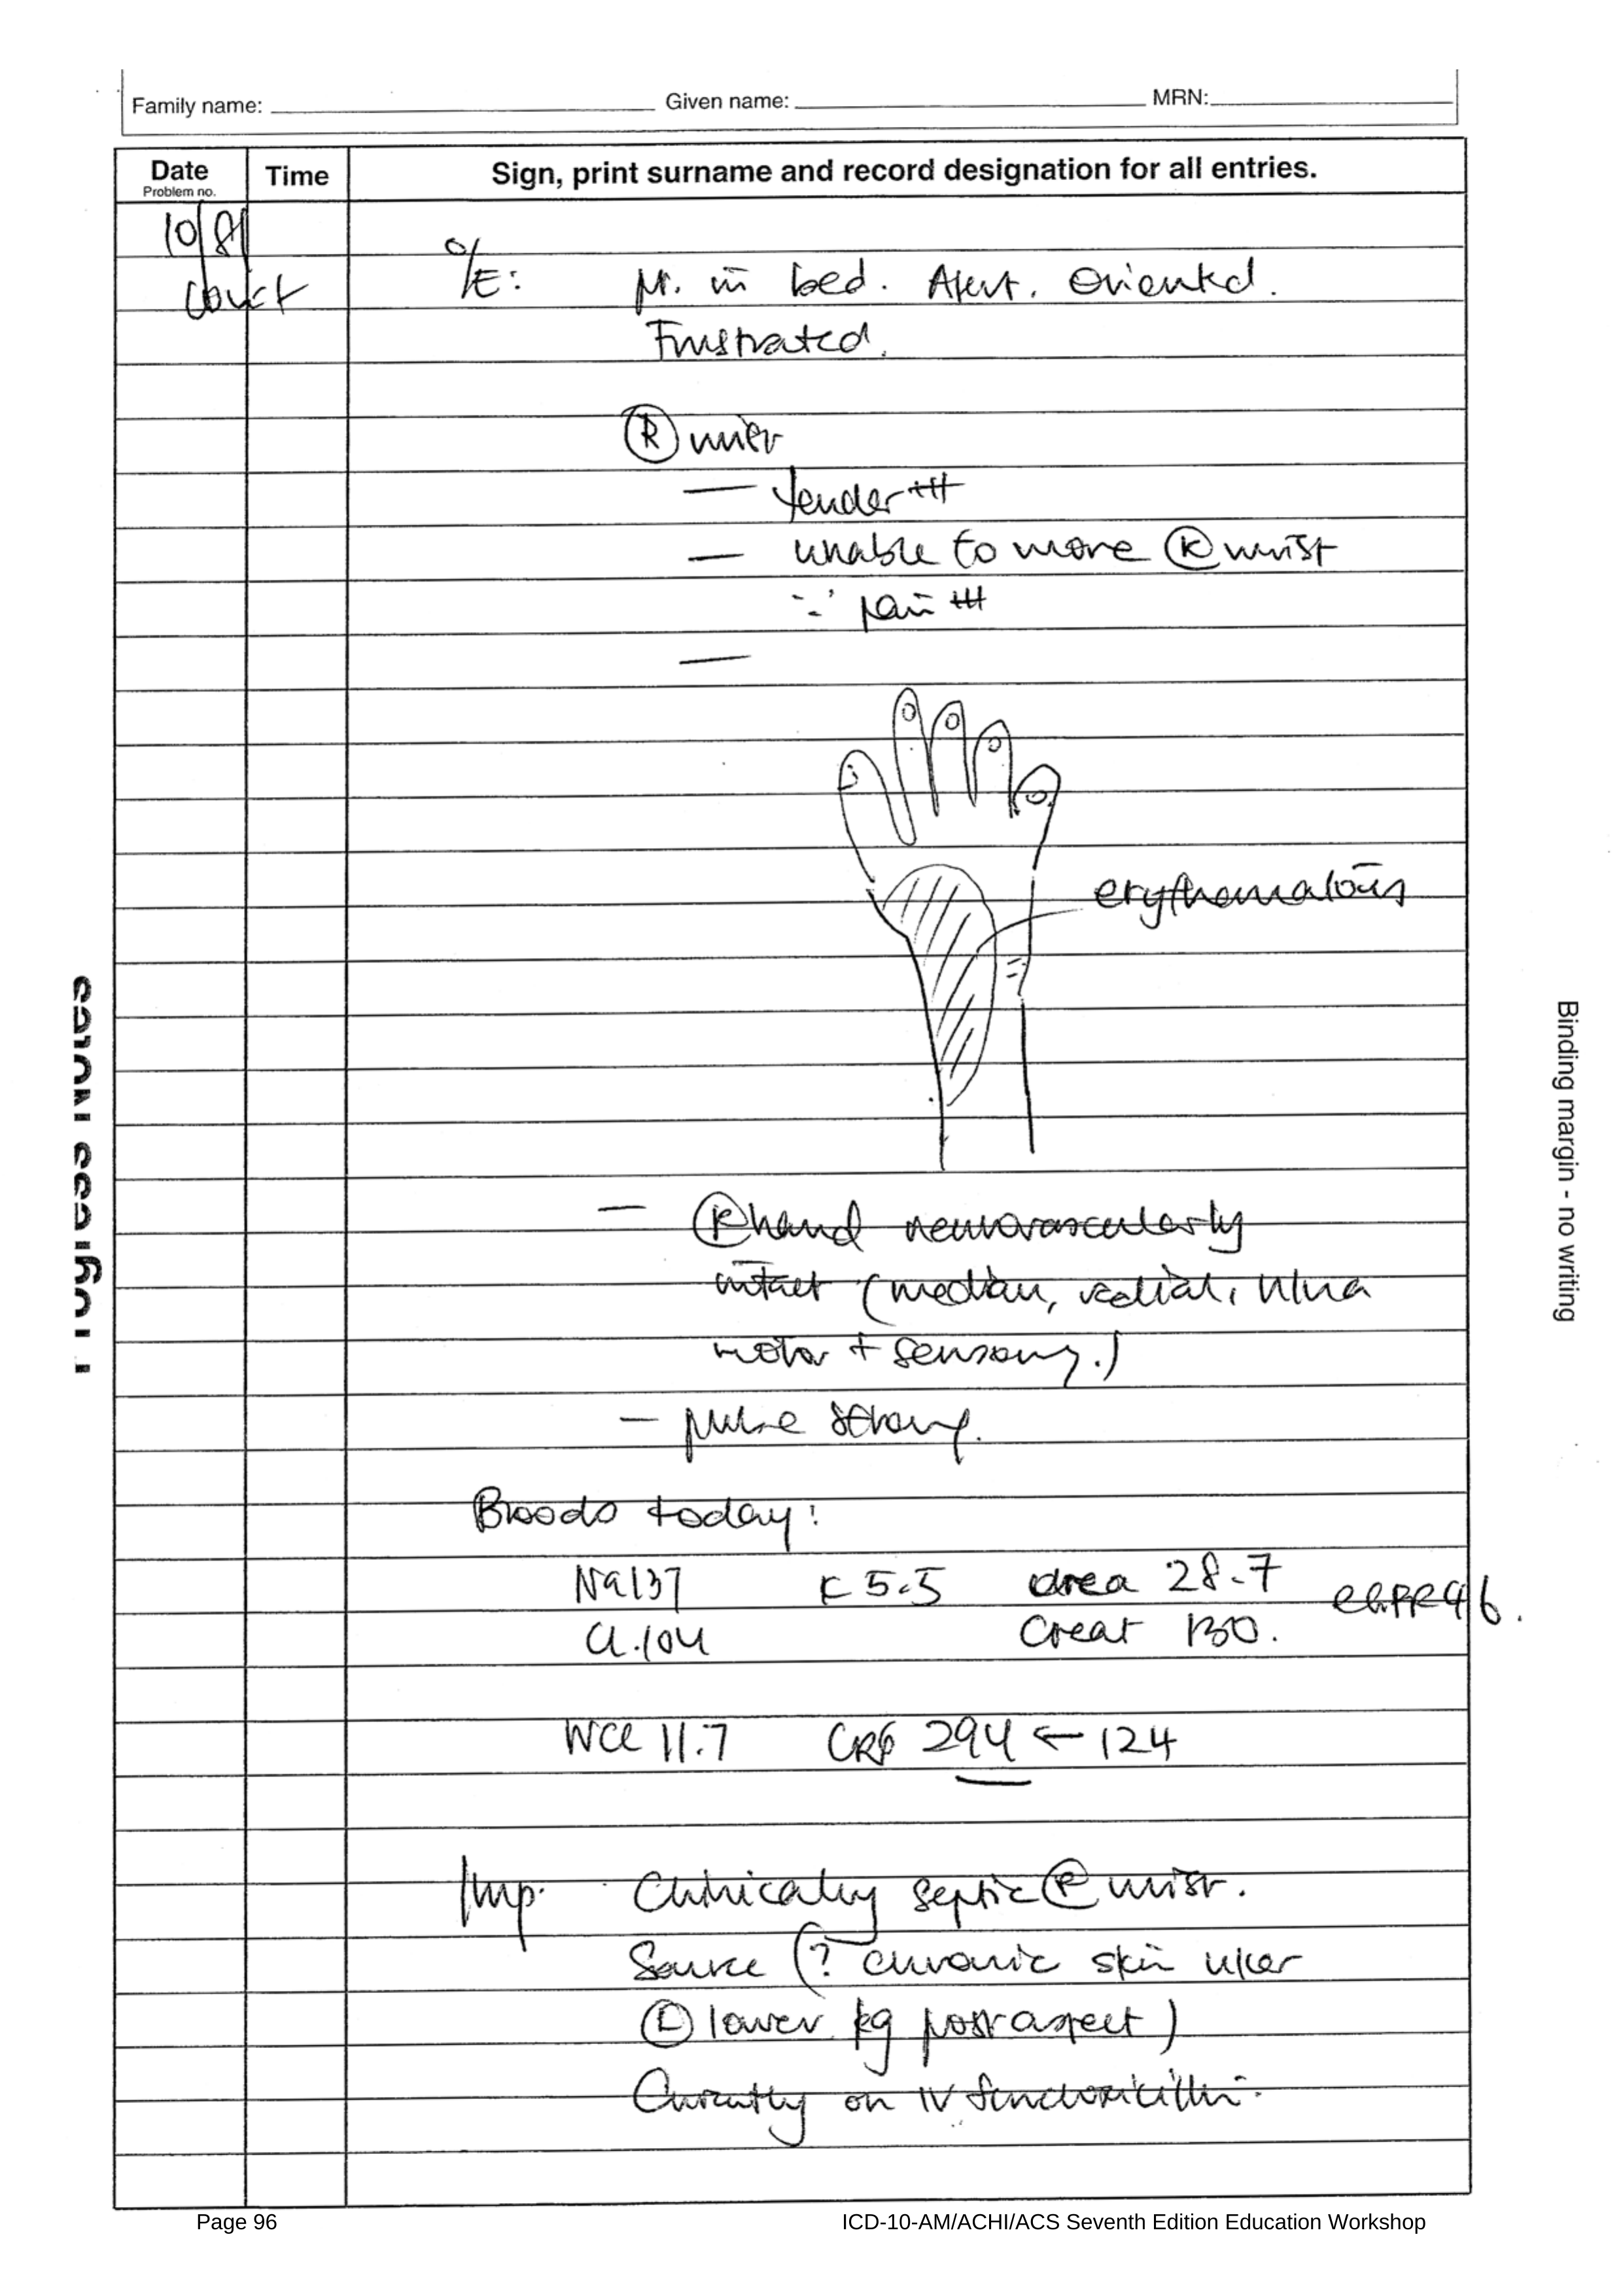 Family name: Given name: MRN:
Date Time Sign, print surname and record designation for all entries.
Problem no.
10/8
cont O/E: Pt. in bed. Alert. Oriented.
Frustrated.
Ⓡ wrist
— tender +++
— unable to move Ⓡ wrist
∵ pain +++
—
erythematous
— Ⓡ hand neurovascularly
intact (median, radial, ulna
motor + sensory.)
— pulse strong.
Bloods today:
Na 137 K 5.5 Urea 28.7 eGFR 46.
Cl 104 Creat 130.
WCC 11.7 CRP 294 ← 124
Imp. Clinically septic Ⓡ wrist.
Source (? chronic skin ulcer
Ⓛ lower leg post aspect)
Currently on IV flucloxicillin.
Progress Notes
Binding margin - no writing
Page 96 ICD-10-AM/ACHI/ACS Seventh Edition Education Workshop